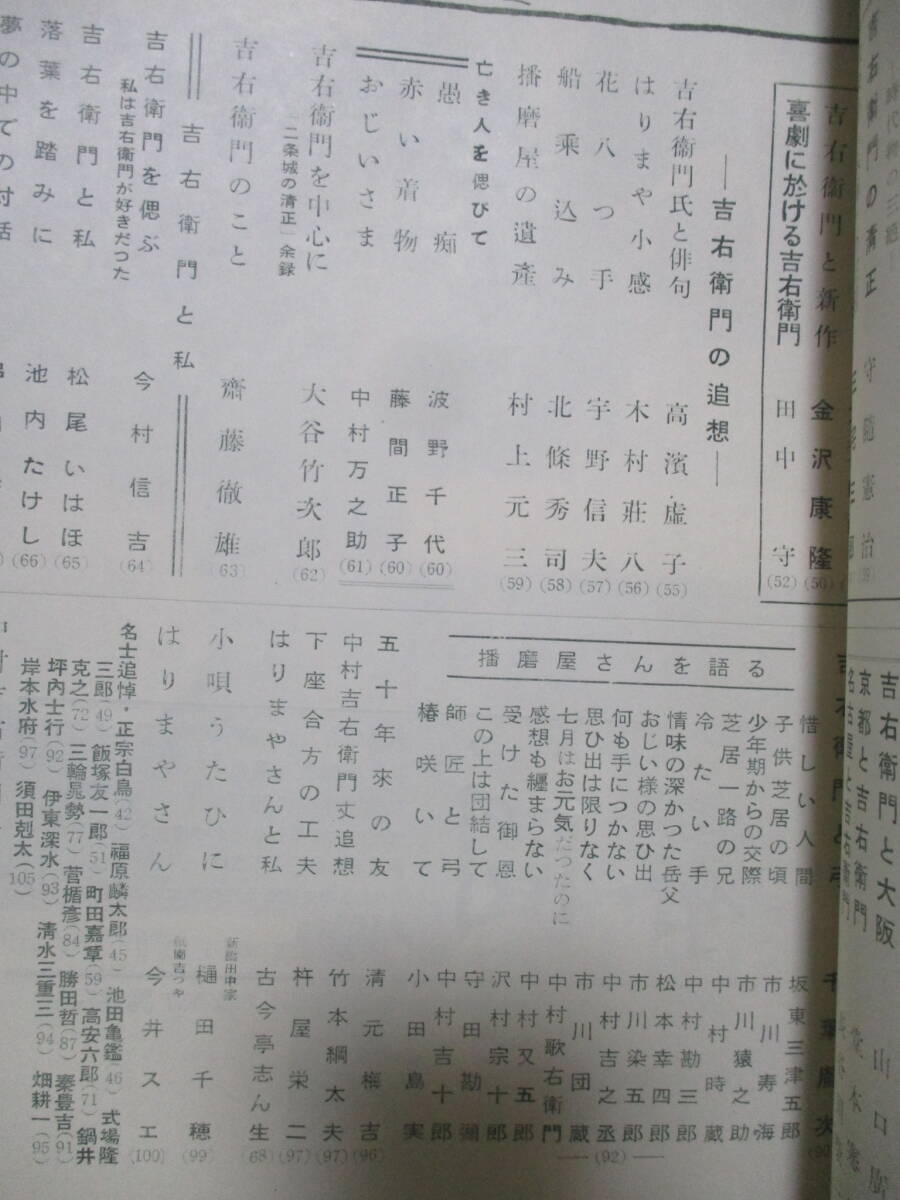 吉右衛門と新作 金沢康隆 (50)
喜劇に於ける吉右衛門 田中守 (52)
―吉右衛門の追想―
吉右衛門氏と俳句 高濱虚子 (55)
はりまや小感 木村荘八 (56)
花八つ手 宇野信夫 (57)
船乗込み 北條秀司 (58)
播磨屋の遺産 村上元三 (59)
亡き人を偲びて
愚痴 波野千代 (60)
赤い着物 藤間正子 (60)
おじいさま 中村万之助 (61)
吉右衛門を中心に 大谷竹次郎 (62)
「二条城の清正」余録
吉右衛門のこと 齋藤徹雄 (63)
吉右衛門と私
吉右衛門を偲ぶ 今村信吉 (64)
私は吉右衛門が好きだつた
吉右衛門と私 松尾いはほ (65)
落葉を踏みに 池内たけし (66)
夢の中での対話
吉右衛門と大阪 山口
京都と吉右衛門
名古屋と吉右衛門
吉右衛門と弓
播磨屋さんを語る
惜しい人間 坂東三津五郎
子供芝居の頃 市川寿海
少年期からの交際 市川猿之助
芝居一路の兄 中村時蔵
冷たい手 中村勘三郎
情味の深かつた岳父 松本幸四郎
おじい様の思ひ出 市川染五郎
何も手につかない 中村吉之丞
思ひ出は限りなく 市川団蔵
七月はお元気だつたのに 中村歌右衛門
感想も纏まらない 中村又五郎
受けた御恩 沢村宗十郎
この上は団結して 守田勘彌
師匠と弓 中村吉十郎
椿咲いて 小田島実
(92)
五十年来の友 清元梅吉 (96)
中村吉右衛門丈追想 竹本綱太夫 (97)
下座合方の工夫 杵屋栄二 (97)
はりまやさんと私 古今亭志ん生 (68)
小唄うたひに 新橋田中家 樋田千穂 (99)
はりまやさん 祇園吉つや 今井スエ (100)
名士追悼・正宗白鳥(42) 福原麟太郎(45) 池田亀鑑(46) 式場隆
三郎(49) 飯塚友一郎(51) 町田嘉章(59) 高安六郎(71) 鍋井
克之(72) 三輪晁勢(77) 菅楯彦(84) 勝田哲(87) 秦豊吉(91)
坪内士行(92) 伊東深水(93) 清水三重三(94) 畑耕一(95)
岸本水府(97) 須田剋太(105)